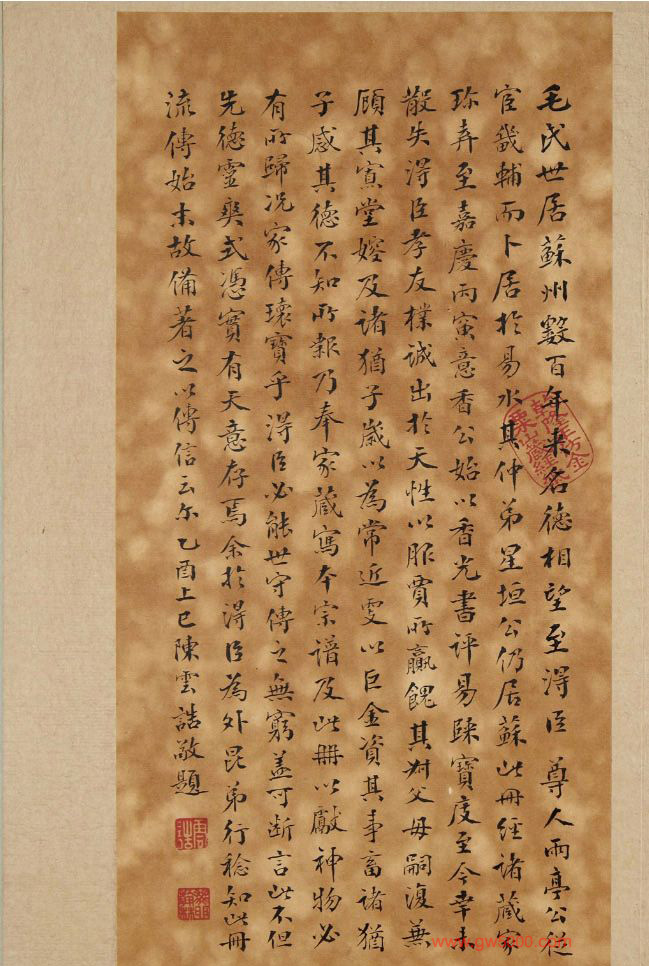 毛氏世居蘇州數百年來名德相望至淂臣尊人雨亭公從
宦畿輔而卜居於易水其仲弟星垣公仍居蘇此冊經諸藏家
珎弆至嘉慶丙寅意香公始以香光書評易歸寶度至今幸未
散失淂臣孝友樸誠出於天性以服賈所贏餽其叔父母嗣復兼
顧其寡堂嫂及諸猶子歲以為常近更以巨金資其事畜諸猶
子感其德不知所報乃奉家藏寫本宗譜及此冊以獻神物必
有所歸况家傳瓌寶乎淂臣必能世守傳之無窮盖可斷言此不但
先德靈爽式憑實有天意存焉余於淂臣為外昆弟行稔知此冊
流傳始末故備著之以傳信云尔乙酉上巳陳雲誥敬題
www.gw8200.com